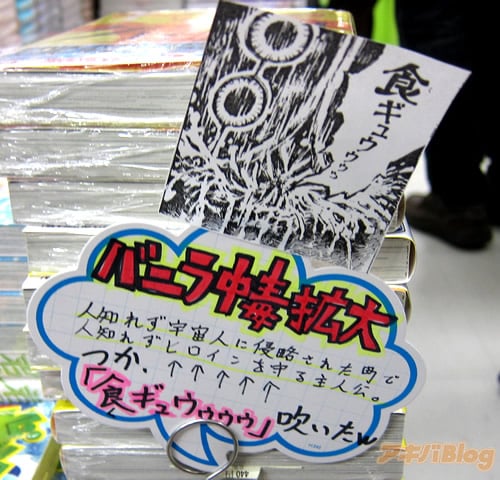 食ギュウゥゥゥ
バニラ中毒拡大
人知れず宇宙人に侵略された町で
人知れずヒロインを守る主人公。
つか、↑↑↑↑↑
「食ギュウゥゥゥ」吹いたw
アキバBlog